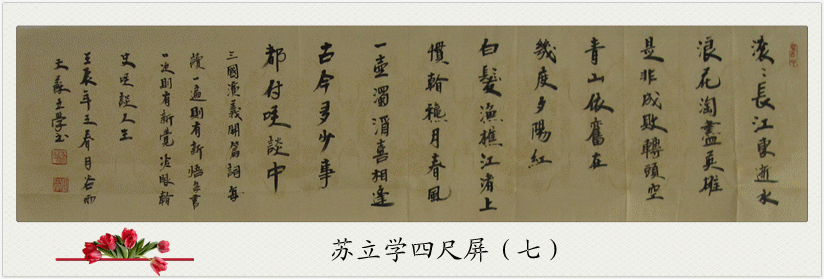 滚〻長江東逝水
浪花淘盡英雄
是非成敗轉頭空
青山依舊在
幾度夕陽紅
白髮漁樵江渚上
慣看秋月春風
一壺濁酒喜相逢
古今多少事
都付笑談中
三國演義開篇詞每
讀一遍則有新悟每書
一次則有新覺
壬辰年三春月谷雨
苏立学四尺屏（七）